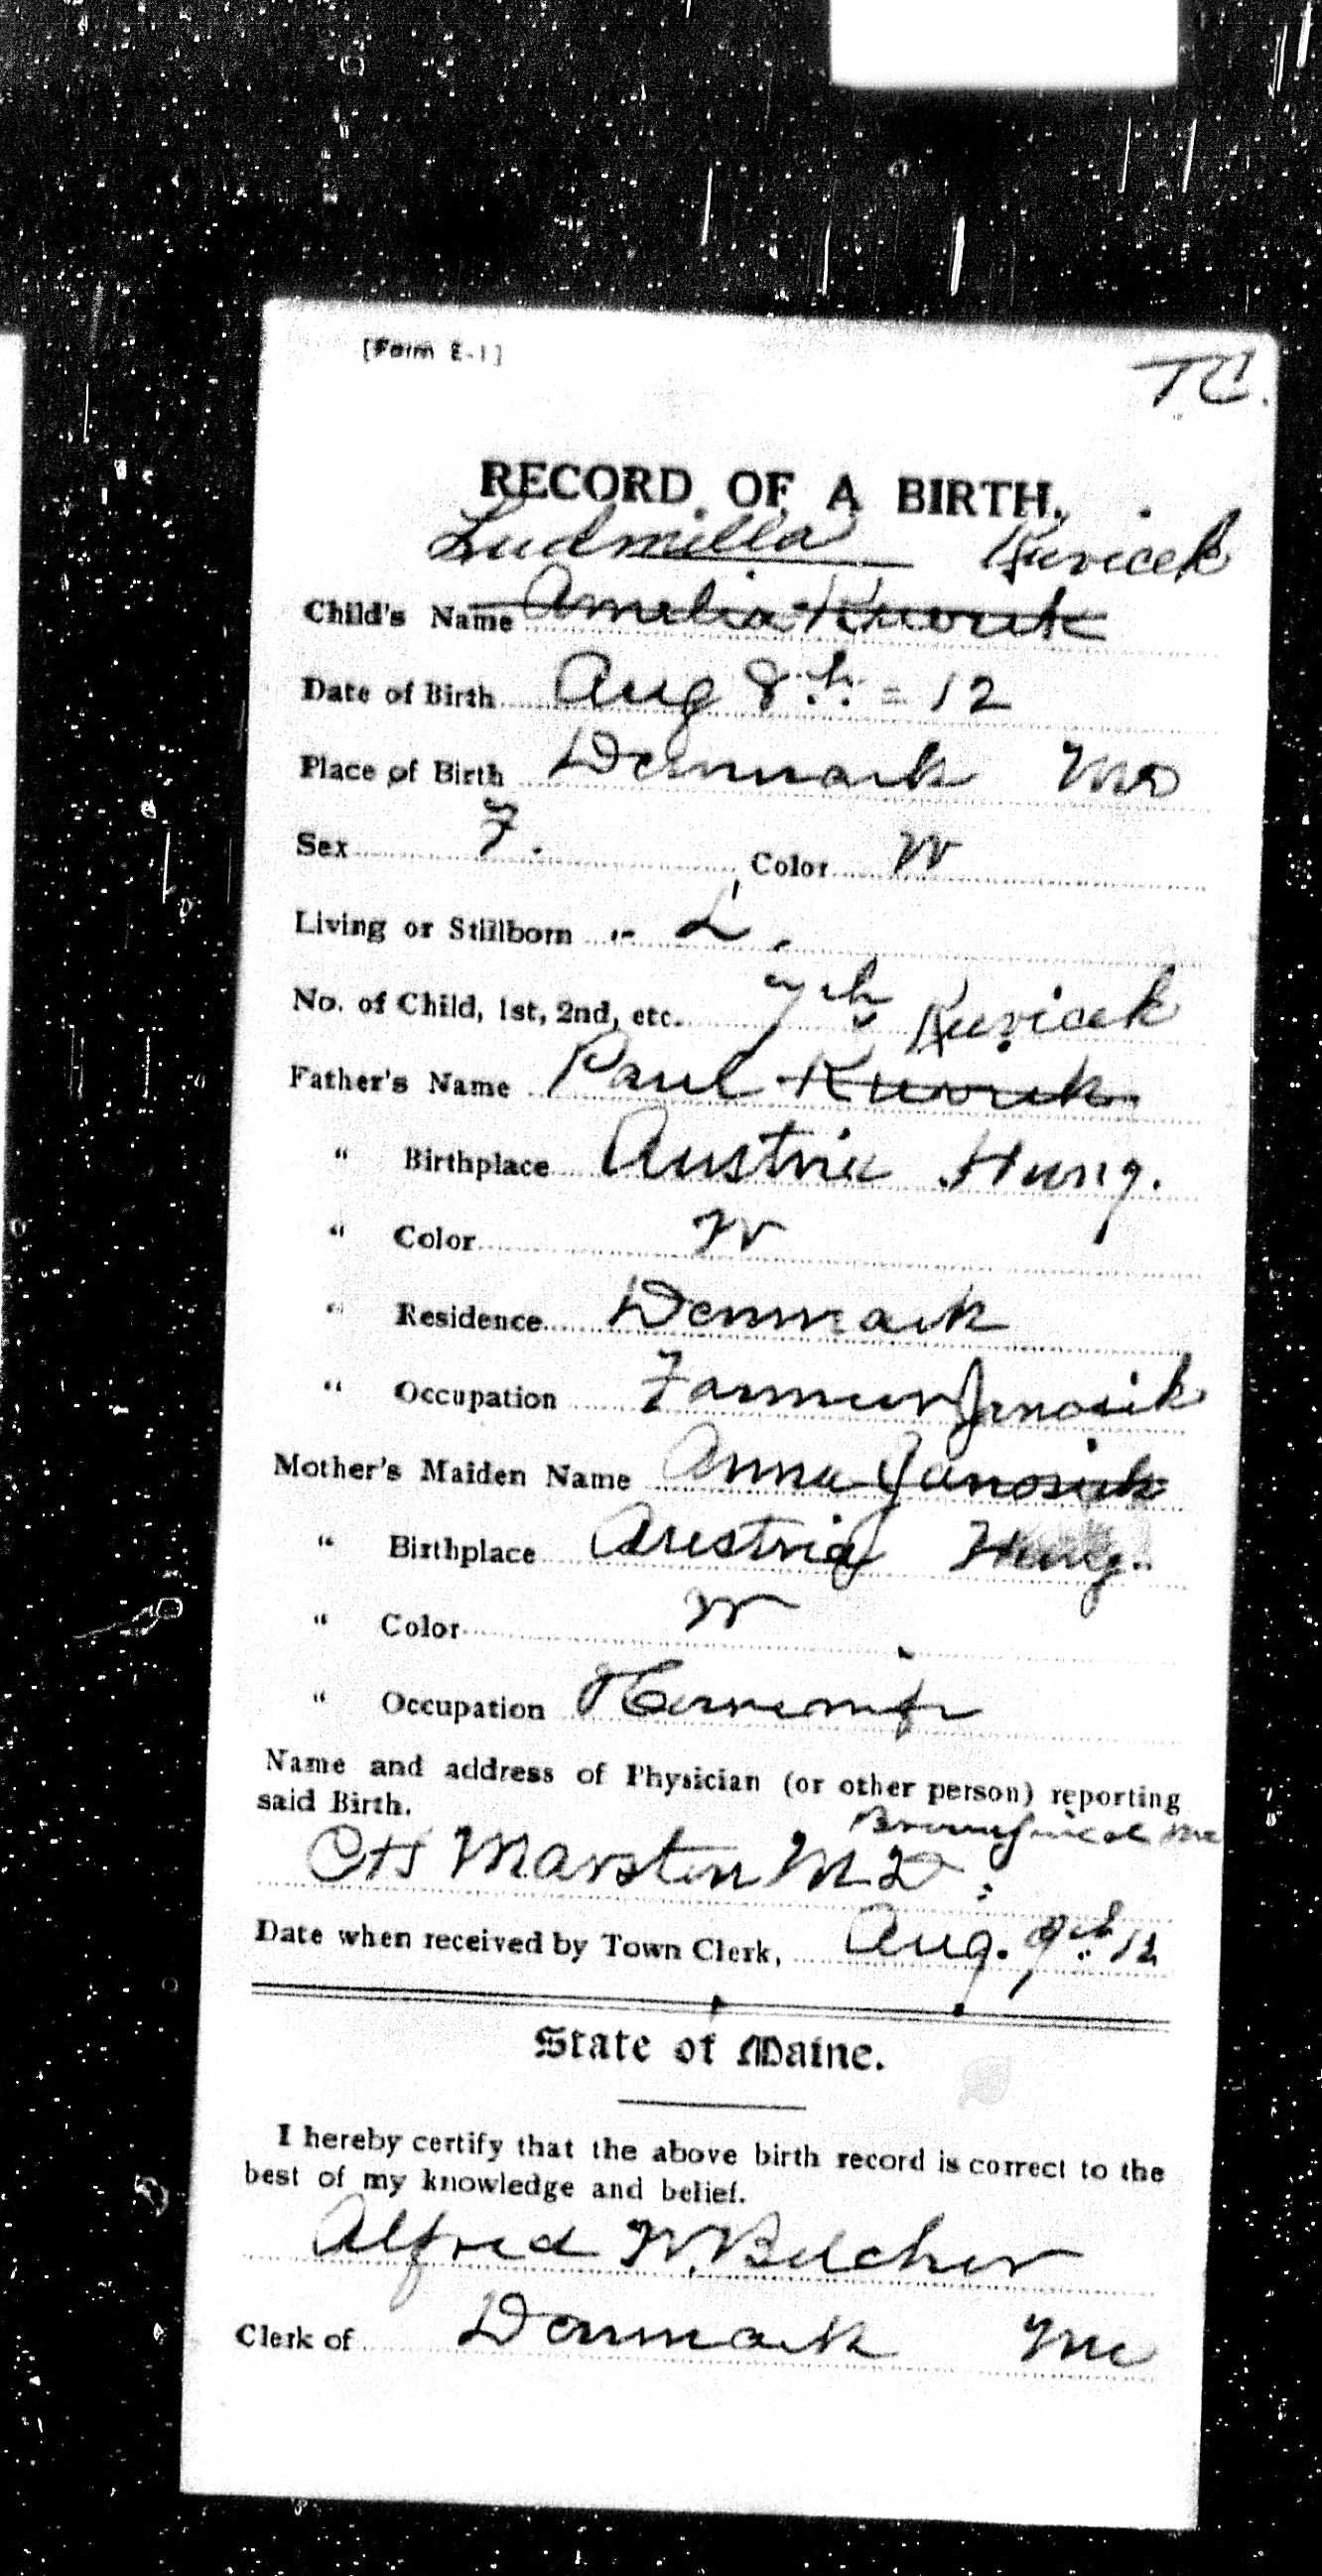 [Form E-1]
TC.
RECORD OF A BIRTH.
Ludmilla Kuvicek
Child's Name Amelia
Date of Birth Aug 8th = 12
Place of Birth Denmark Me
Sex F. Color W
Living or Stillborn L.
No. of Child, 1st, 2nd, etc. 7th
Kuvicek
Father's Name Paul
" Birthplace Austria Hung.
" Color W
" Residence Denmark
" Occupation Farmer
Janosik
Mother's Maiden Name Anna
" Birthplace Austria Hung.
" Color W
" Occupation Housewife
Name and address of Physician (or other person) reporting
said Birth.
Brownfield Me
Marston M.D.
Date when received by Town Clerk, Aug. 9th 12
State of Maine.
I hereby certify that the above birth record is correct to the
best of my knowledge and belief.
Alfred W. Belcher
Clerk of Denmark Me